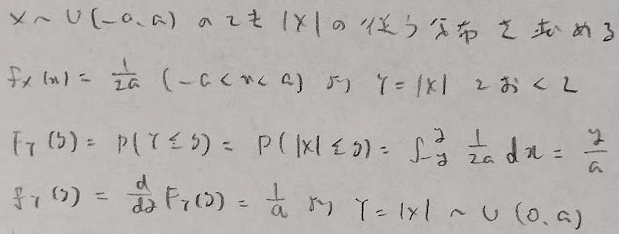 X ~ U(-a, a) のとき |X| の従う分布を求める
f_X(x) = 1/2a (-a < x < a) より Y = |X| とおくと
F_Y(y) = P(Y ≤ y) = P(|X| ≤ y) = ∫_{-y}^{y} 1/2a dx = y/a
f_Y(y) = d/dy F_Y(y) = 1/a より Y = |X| ~ U(0, a)